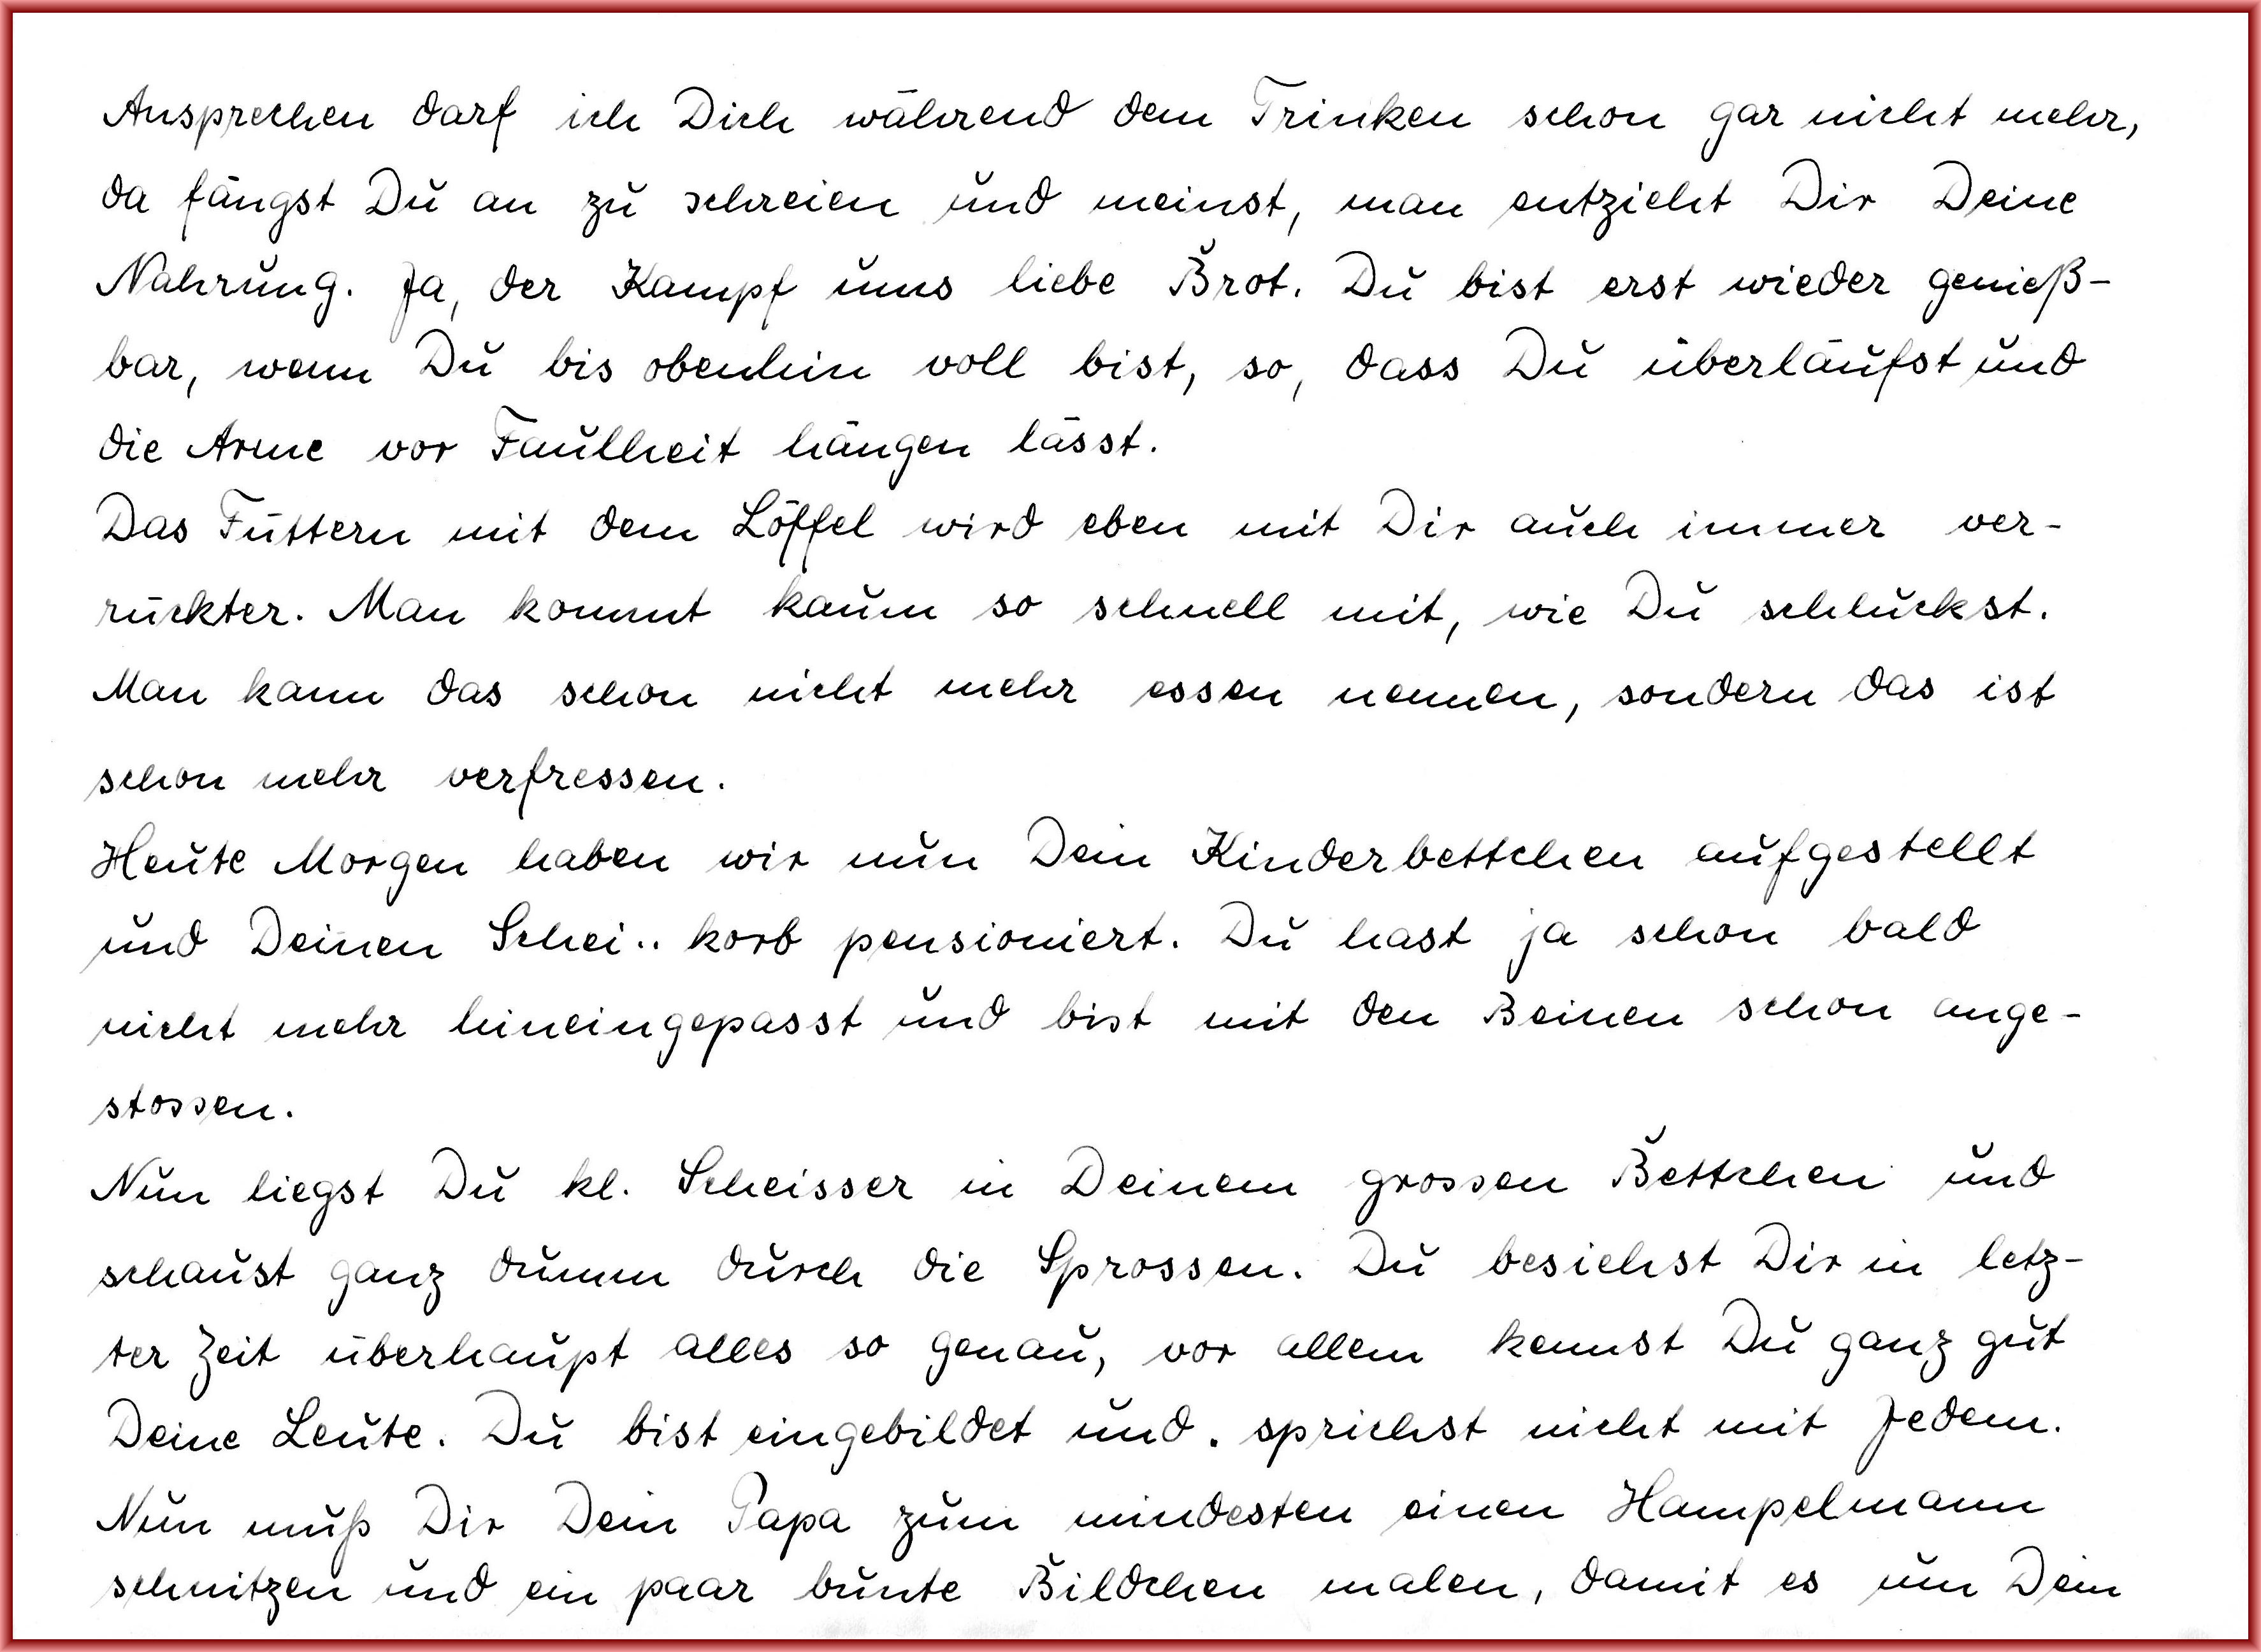 Ansprechen darf ich Dich während dem Trinken schon gar nicht mehr,
da fängst Du an zu schreien und meinst, man entzieht Dir Deine
Nahrung. Ja, der Kampf ums liebe Brot. Du bist erst wieder genieß-
bar, wenn Du bis obenhin voll bist, so, dass Du überläufst und
die Arme vor Faulheit hängen lässt.
Das Füttern mit dem Löffel wird eben mit Dir auch immer ver-
rückter. Man kommt kaum so schnell mit, wie Du schluckst.
Man kann das schon nicht mehr essen nennen, sondern das ist
schon mehr verfressen.
Heute Morgen haben wir nun Dein Kinderbettchen aufgestellt
und Deinen Schei.. korb pensioniert. Du hast ja schon bald
nicht mehr hineingepasst und bist mit den Beinen schon ange-
stossen.
Nun liegst Du kl. Scheisser in Deinem grossen Bettchen und
schaust ganz dumm durch die Sprossen. Du besiehst Dir in letz-
ter Zeit überhaupt alles so genau, vor allem kennst Du ganz gut
Deine Leute. Du bist eingebildet und. sprichst nicht mit Jedem.
Nun muß Dir Dein Papa zum mindesten einen Hampelmann
schnitzen und ein paar bunte Bildchen malen, damit es um Dein